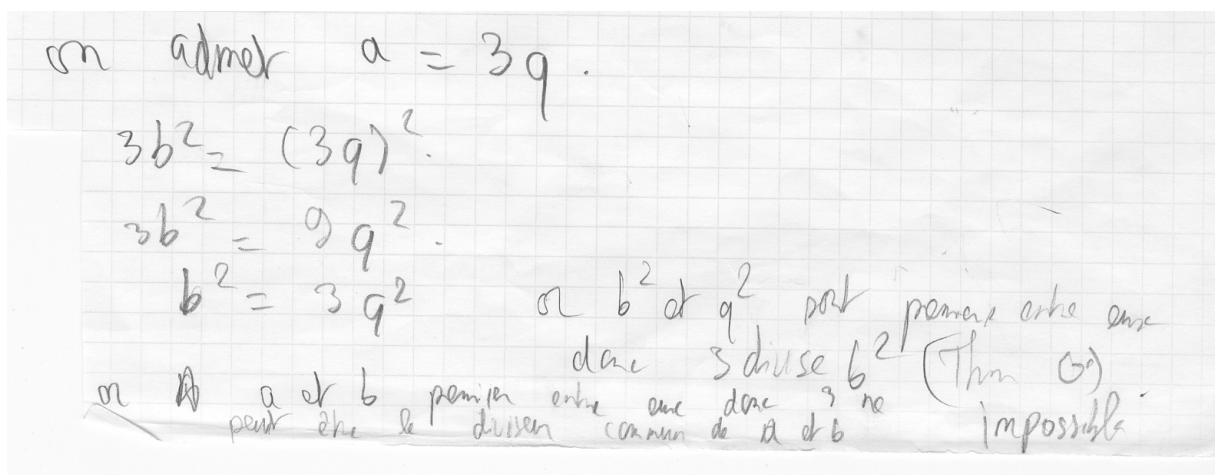 on admet a = 3q.
3b² = (3q)².
3b² = 9q².
b² = 3q² or b² et q² sont premiers entre eux
donc 3 divise b² (Thm G)
or a et b premier entre eux donc 3 ne impossible.
peut être le diviseur commun de a et b